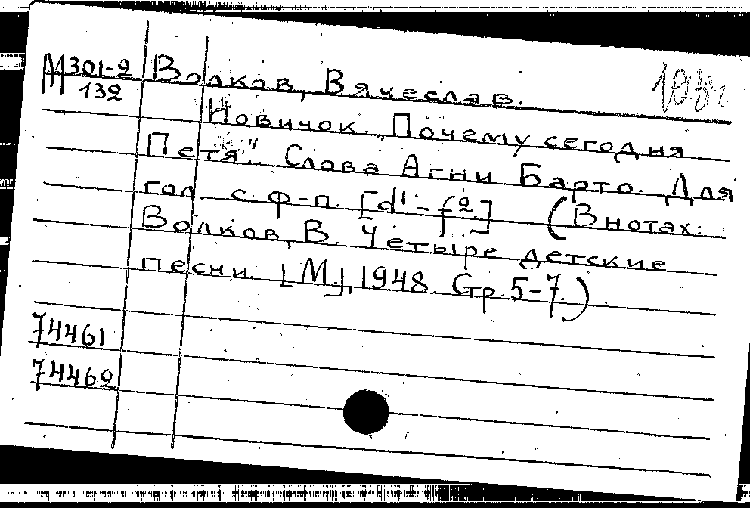 М301-2 Волков, Вячеслав.
132
Новичок. „Почему сегодня
Петя". Слова Агни Барто. Для
гол. с ф-п. [d¹-f²] (В нотах:
Волков, В. Четыре детские
песни. [М.], 1948. Стр. 5-7.)
74461
74462